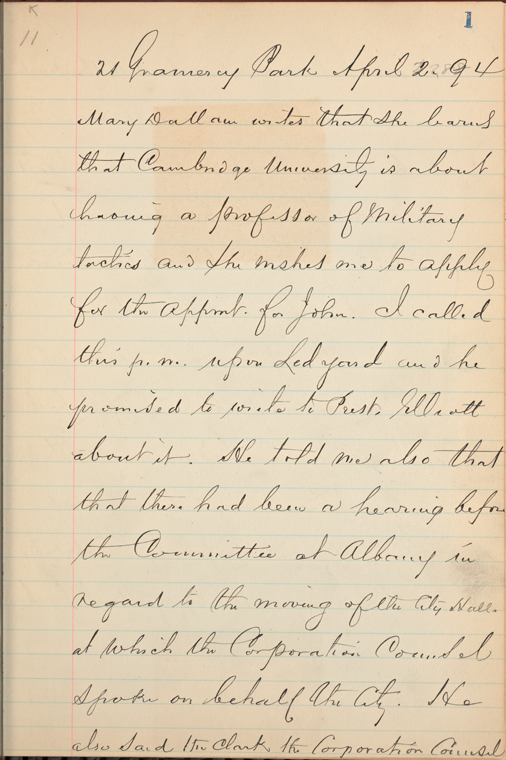 K
11
1
21 Gramercy Park April 2. 94
Mary Dallam writes that she learns
that Cambridge University is about
having a professor of Military
tactics and she wishes me to apply
for the appmt. for John. I called
this p.m. upon Ledyard and he
promised to write to Prest. Elliott
about it. He told me also that
that there had been a hearing before
the Committee at Albany in
regard to the moving of the City Hall.
at which the Corporation Counsel
spoke on behalf the City. He
also said the Clark the Corporation Counsel